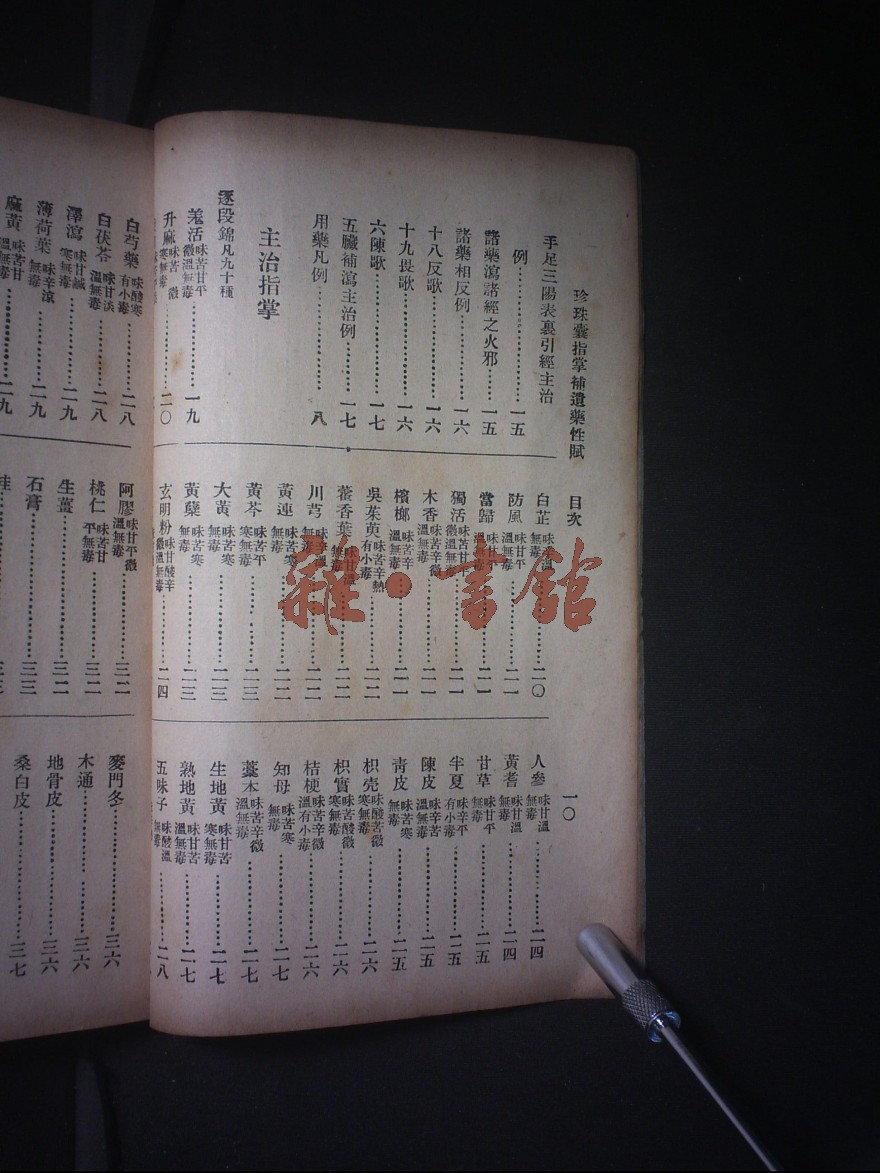 珍珠囊指掌補遺藥性賦　目次　一〇
手足三陽表裏引經主治
例………一五
諸藥瀉諸經之火邪…一五
諸藥相反例………一六
十八反歌………一六
十九畏歌………一六
六陳歌………一七
五臟補瀉主治例……一七
用藥凡例………八
主治指掌
逐段錦凡九十種
羗活味苦甘平微溫無毒……一九
升麻味苦微寒無毒……二〇
白芷……二〇
防風味甘平無毒……二一
當歸……二一
獨活味苦甘平微溫無毒……二一
木香味苦辛微溫無毒……二一
檳榔味苦辛溫無毒……二一
吳茱萸味苦辛熱有小毒……二二
藿香葉味甘溫無毒……二二
川芎……二二
黃連味苦寒無毒……二二
黃芩味苦平寒無毒……二三
大黃味苦寒無毒……二三
黃蘗味苦寒無毒……二三
玄明粉味甘酸辛微溫無毒……二四
人參味甘溫無毒……二四
黃耆味甘溫無毒……二四
甘草味甘平無毒……二五
半夏味辛平有小毒……二五
陳皮味辛苦溫無毒……二五
青皮味苦寒無毒……二五
枳壳味酸苦微寒無毒……二六
枳實味苦酸微寒無毒……二六
桔梗味苦辛微溫有小毒……二六
知母味苦寒無毒……二七
藁本味苦辛微溫無毒……二七
生地黃味甘苦寒無毒……二七
熟地黃味甘苦溫無毒……二七
五味子味酸溫無毒……二八
白芍藥味酸寒有小毒……二八
白茯苓味甘淡溫無毒……二八
澤瀉味甘鹹寒無毒……二九
薄荷葉味辛涼無毒……二九
麻黃味苦甘溫無毒……二九
阿膠味甘平微溫無毒……三二
桃仁味苦甘平無毒……三二
生薑……三二
石膏……三三
麥門冬……三六
木通……三六
地骨皮……三六
桑白皮……三七
雜·書館